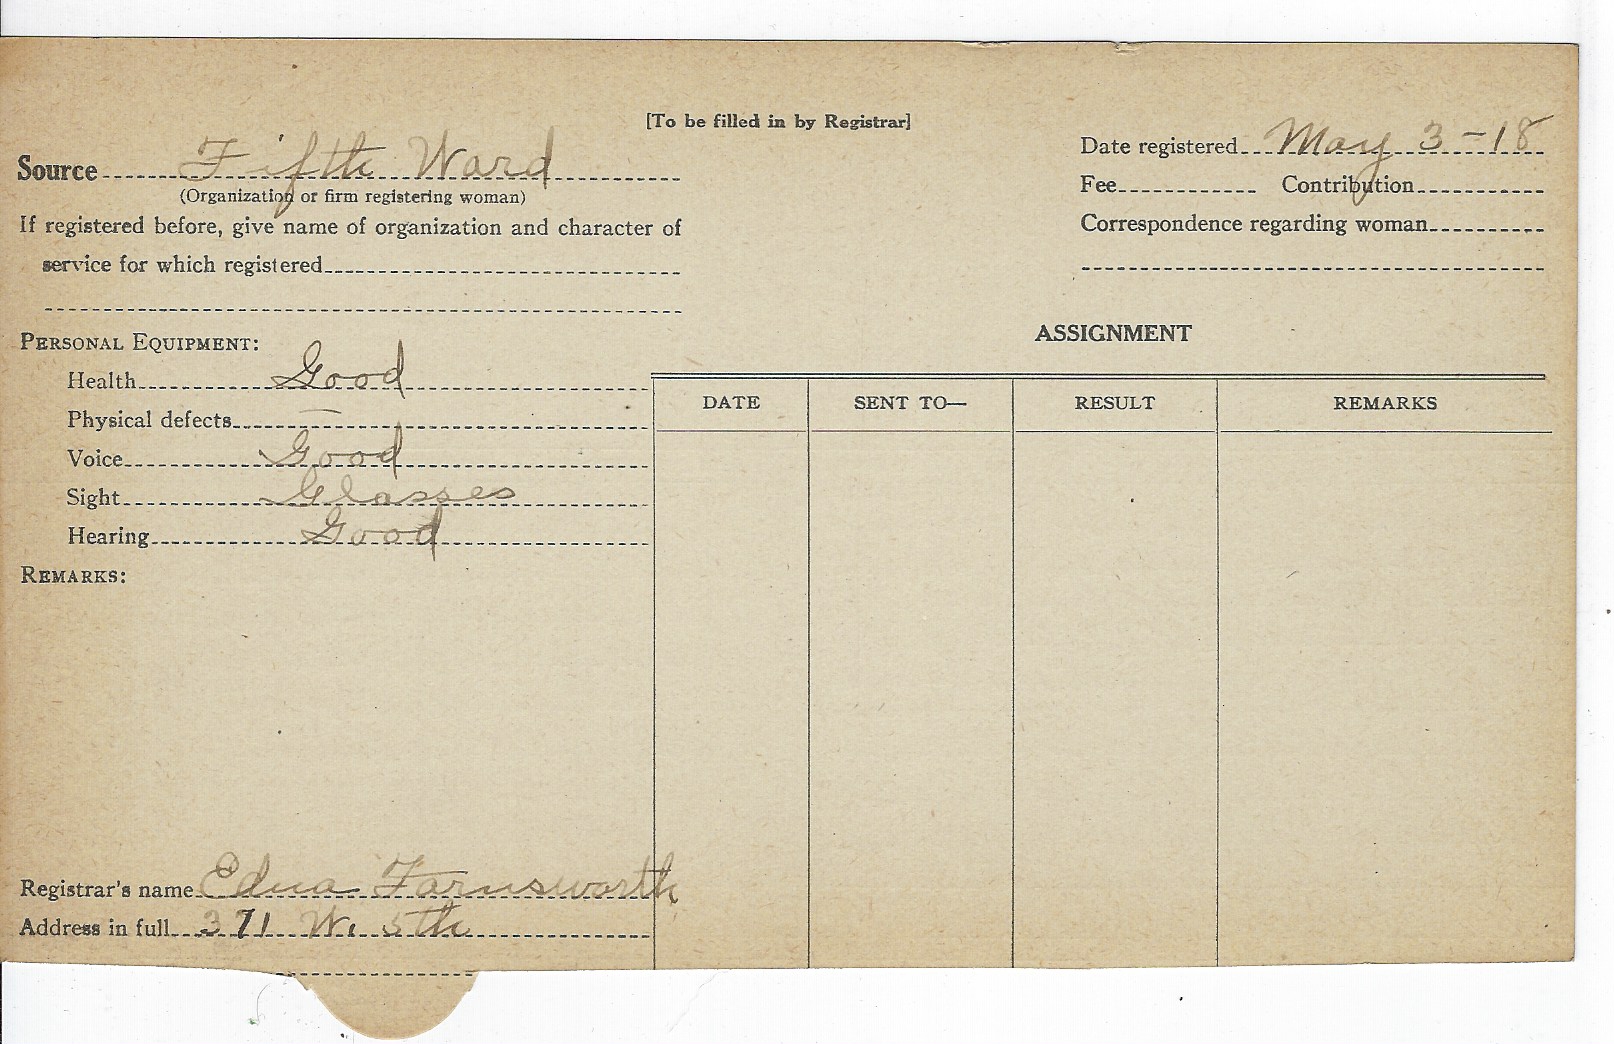 [To be filled in by Registrar]
Source Fifth Ward
(Organization or firm registering woman)
If registered before, give name of organization and character of
service for which registered
Date registered May 3-18
Fee Contribution
Correspondence regarding woman
PERSONAL EQUIPMENT:
Health Good
Physical defects —
Voice Good
Sight Glasses
Hearing Good
REMARKS:
ASSIGNMENT
DATE SENT TO— RESULT REMARKS
Registrar's name Edna Farnsworth
Address in full 371 W. 5th